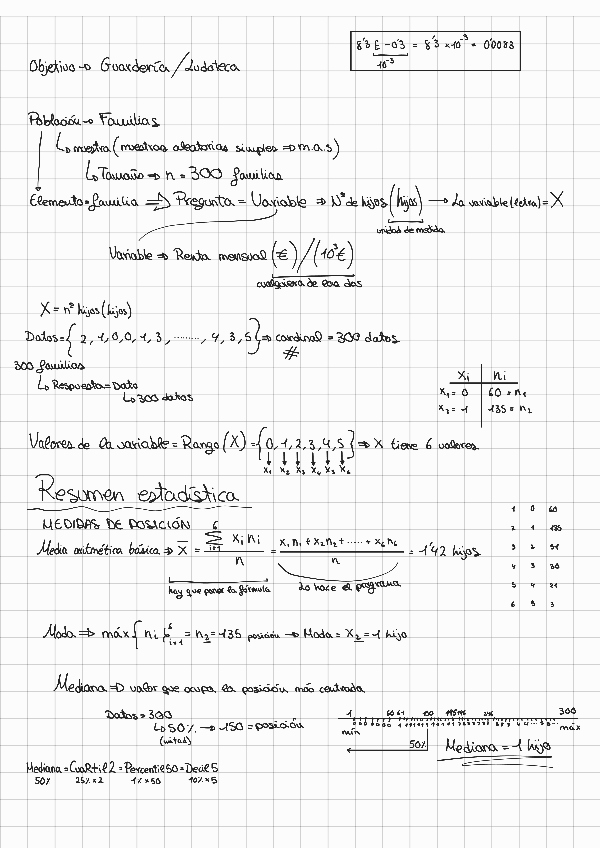 8'3 E-03 = 8'3 × 10⁻³ = 0'0083
10⁻³
Objetivo → Guardería / Ludoteca
Población → Familias
↳ muestra (muestras aleatorias simples ⇒ m.a.s)
↳ Tamaño ⇒ n = 300 familias
Elemento = familia ⇒ Pregunta = Variable ⇒ Nº de hijos (hijos) → La variable (letra) = X
unidad de medida
Variable ⇒ Renta mensual (€) / (10³€)
cualquiera de esas dos
X = nº hijos (hijos)
Datos = { 2, 1, 0, 0, 1, 3, ........, 4, 3, 5 } ⇒ cardinal = 300 datos
#
300 familias
↳ Respuesta = Dato
↳ 300 datos
xᵢ nᵢ
x₁ = 0 60 = n₁
x₂ = 1 135 = n₂
Valores de la variable = Rango (X) = { 0, 1, 2, 3, 4, 5 } ⇒ X tiene 6 valores
x₁ x₂ x₃ x₄ x₅ x₆
Resumen estadística
MEDIDAS DE POSICIÓN
Media aritmética básica ⇒ X̄ = ∑⁶ᵢ₌₁ xᵢ nᵢ / n = x₁ n₁ + x₂ n₂ + ..... + x₆ n₆ / n = 1'42 hijos
hay que poner la fórmula lo hace el programa
1 0 60
2 1 135
3 2 51
4 3 30
5 4 21
6 5 3
Moda ⇒ máx { nᵢ }⁶ᵢ₌₁ = n₂ = 135 posición → Moda = x₂ = 1 hijo
Mediana ⇒ valor que ocupa la posición más centrada
Datos = 300
↳ 50% → 150 = posición
(mitad)
1 60 61 150 195 196 246 300
mín máx
50%
Mediana = 1 hijo
Mediana = Cuartil 2 = Percentil 50 = Decil 5
50% 25% × 2 1% × 50 10% × 5